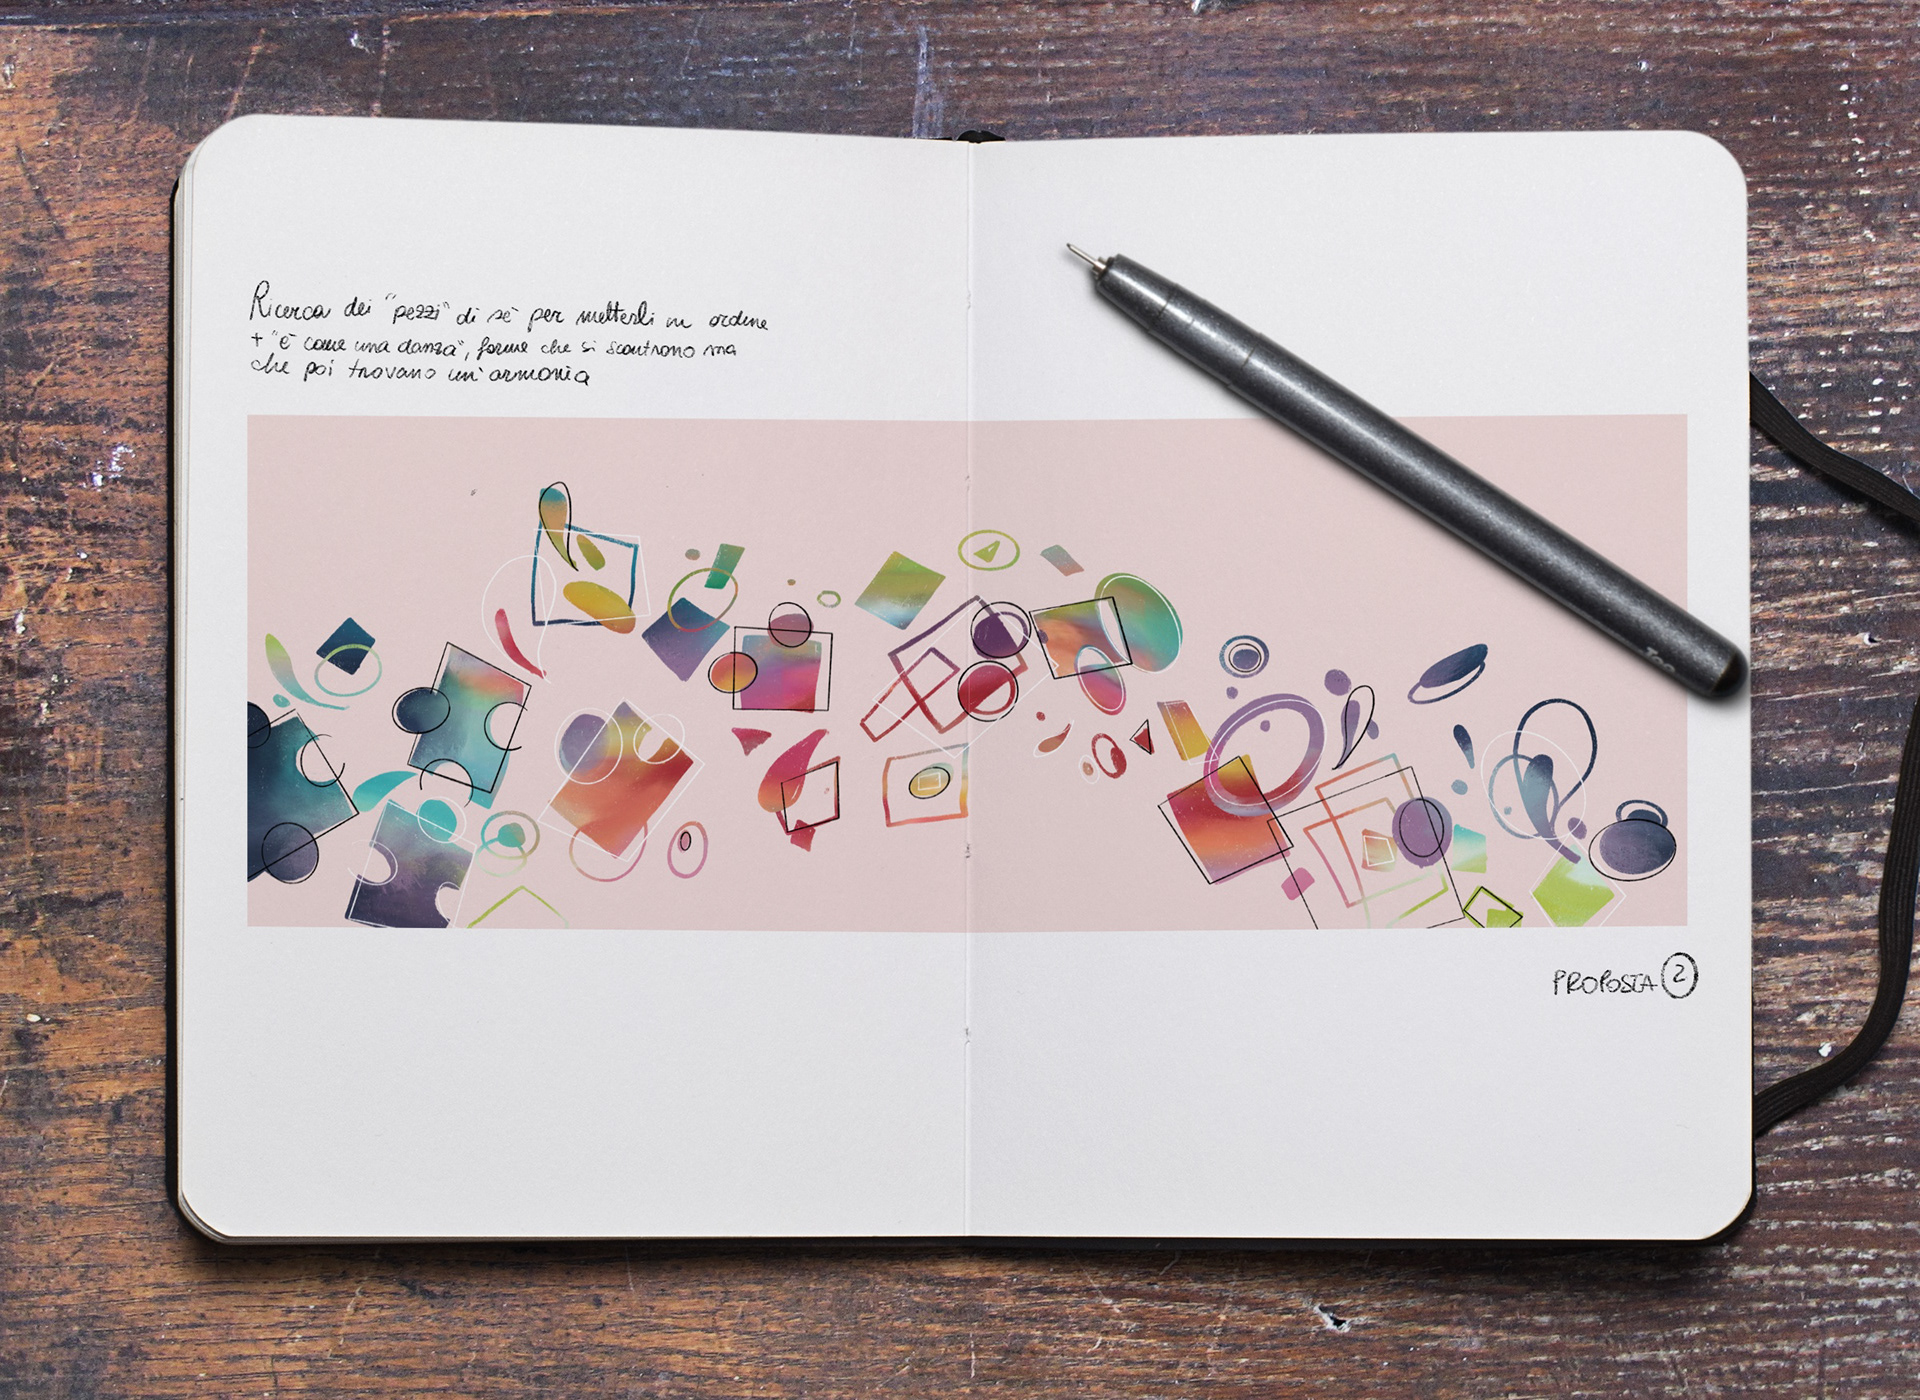 Ricerca dei "pezzi" di sè per metterli in ordine
+ "è come una danza", forme che si scontrano ma
che poi trovano un'armonia
PROPOSTA 2